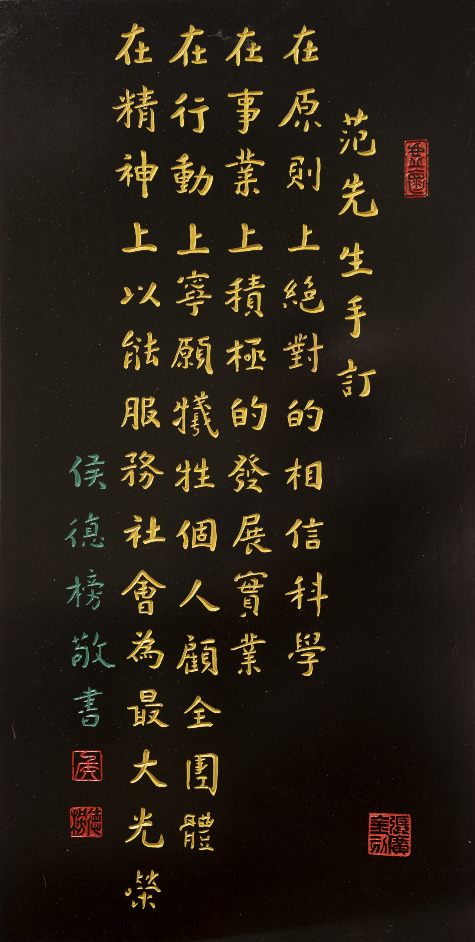 范先生手訂
在原則上絕對的相信科學
在事業上積極的發展實業
在行動上寧願犧牲個人顧全團體
在精神上以能服務社會為最大光榮
侯德榜敬書
侯
德榜